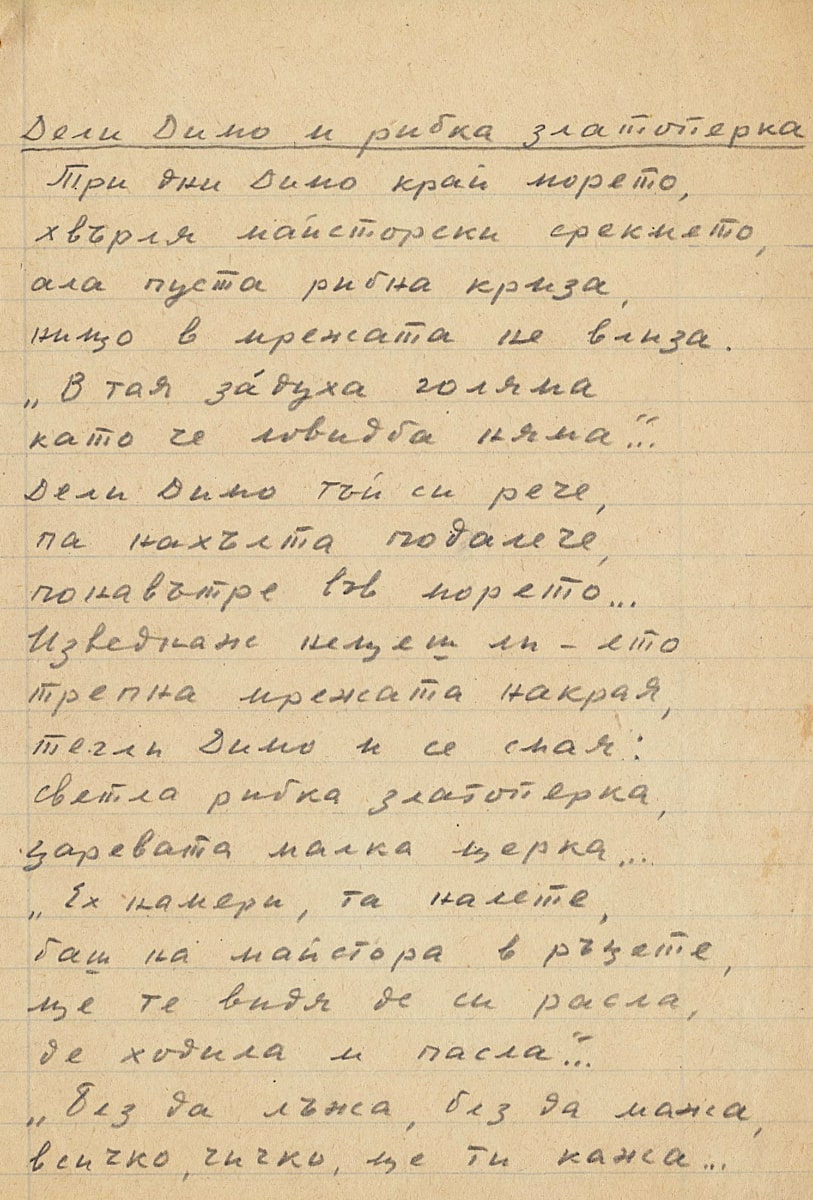 Дели Димо и рибка златоперка
Три дни Димо край морето,
хвърля майсторски серкмето,
ала пуста рибна криза,
нищо в мрежата не влиза.
„В тая за́духа голяма
като че ловидба няма“...
Дели Димо тъй си рече,
па нахълта подалече,
понавътре във морето...
Изведнаж нещеш ли – ето
трепна мрежата накрая,
тегли Димо и се смая:
светла рибка златоперка,
царевата малка щерка...
„Ех намери, та налете,
баш на майстора в ръцете,
ще те видя де си расла,
де ходила и пасла“...
„Без да лъжа, без да мажа,
всичко, чичко, ще ти кажа...